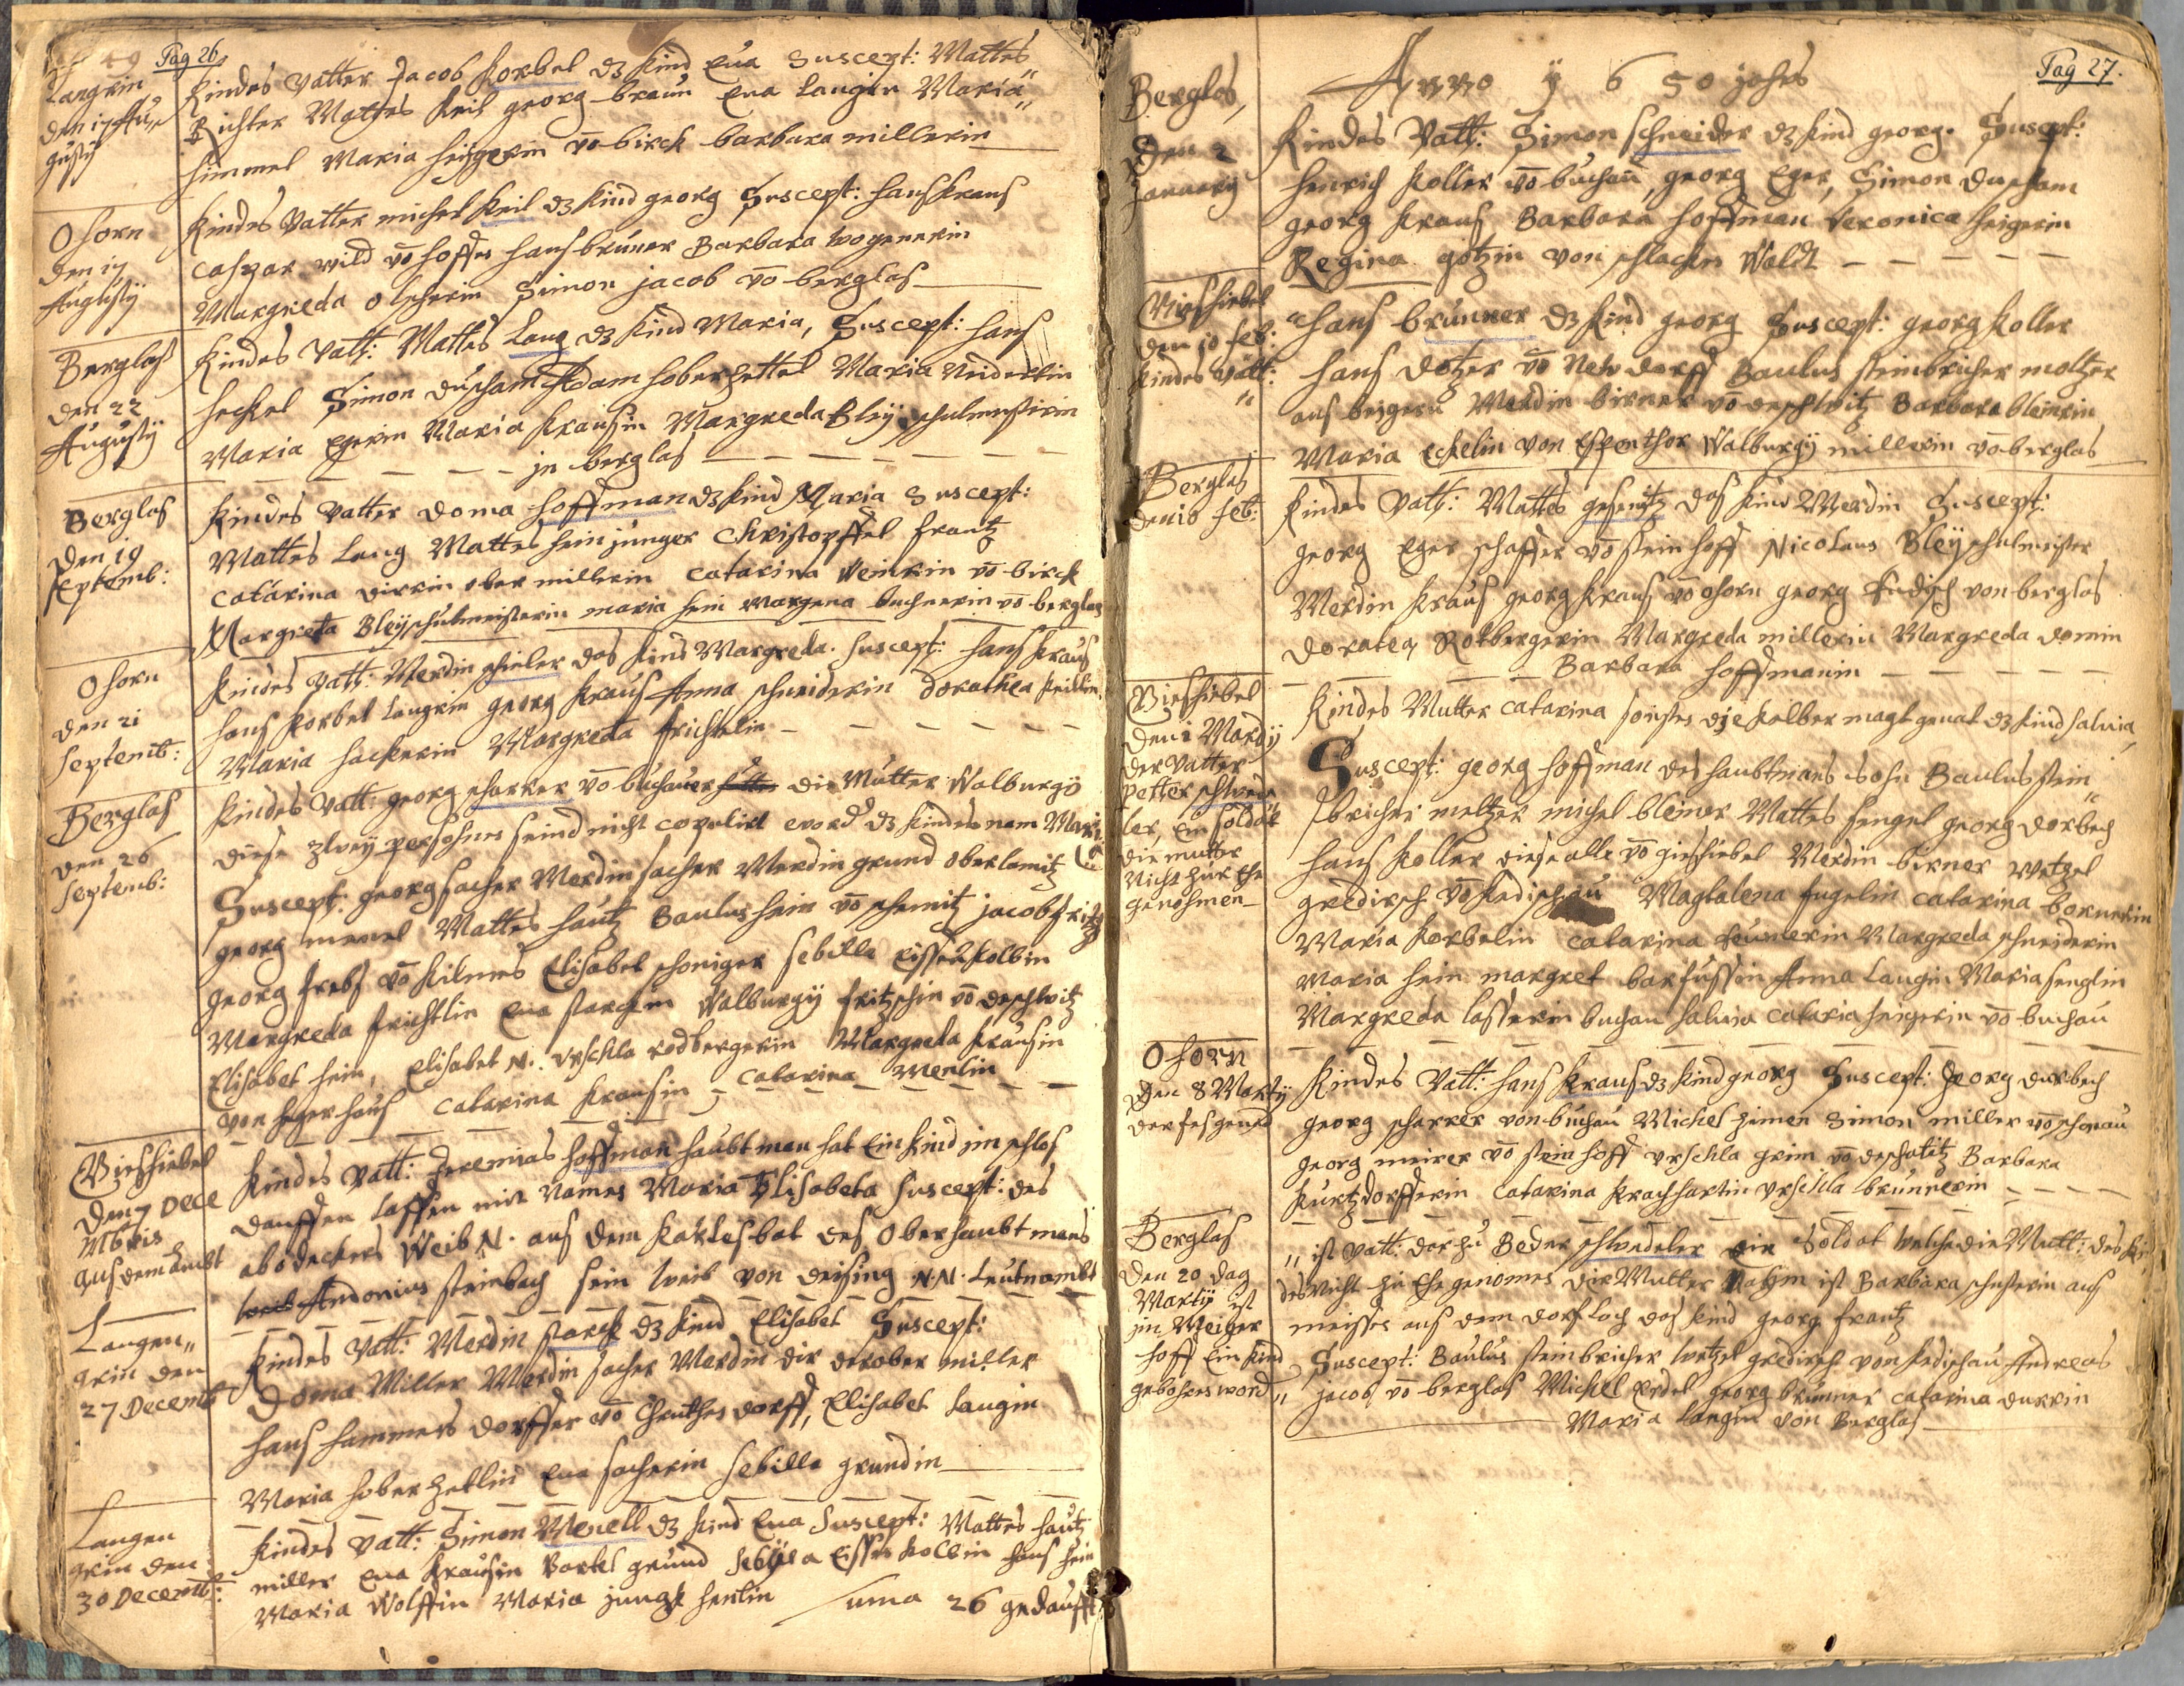 Pag 26
Langrin
den 17 Au„
gusty
Kindes Vatter Jacob Korbel dz Kind Eva Suscept: Mattes
Richter Mattes Keil georg braun Eva Langin Maria
himmel Maria heigerin vō birck barbara millerin
Ohorn
den 17
Augusty
Kindes Vatter michel Keil dz Kind georg Suscept: hans Kraus
Caspar wild vō hoffes hans bruner Barbara wogenerin
Margreda olscherin Simon jacob vō berglas
Berglas
den 22
Augusty
Kindes Vatt: Mattes Lang dz Kind Maria, Suscept: hans
heckel Simon duscham Adam hoberzettel Maria Niderlin
Maria Egerin Maria Krausin Margreda Bley schulmestirin
in berglas
Berglas
den 19
Septemb:
Kindes Vatter doma hoffman dz Kind Maria Suscept:
Mattes Lang Mattes hein junger Christopffel frantz
Catarina dirrin ober millerin Catarina Weinrin vō birck
Margreta Bley schulmeisterin maria hein margena buchnerin vō berglas
Ohorn
den 21
Septemb:
Kindes Vatt: Merdin schieler das Kind Margreda. Suscept: hans Kraus
hans Korbel Langrin georg Kraus Anna schneiderin dorathea Keillin
Maria hackerin Margreda frichtlin
Berglas
den 26
Septemb:
Kindes Vatt: georg scharrer vō buchauer hutte die Mutter Walburgÿ
diese zweÿ persohnen seind nicht copulirt word dz Kindes nam Mari
Suscept: georg sacher Merdin sacher Merdin grund oberlamitz
georg menel Mattes hautz Baulus hein vō schemitz jacob fritz
georg frebs vō Kilmes Elisabet schoniger sebilla Eissenkolbin
Margreda frichtlin Eva starckin Walburgÿ fritzschin vō deschwitz
Elisabet hein, Elisabet N. Urschla rodbergerin Margreda Krausin
von heger haus Catarina Krausin Catarina Menlin
Gieshiebel
den 7 Dece
Mbris
aus dem Ambt
Kindes Vatt: Jeremias hoffman haubtman hat Ein Kind im schlos
dauffen lassen mit Namen Maria Elisabeta Suscept: des
abdeckers Weib N. aus dem Karlesbat des Oberhaubtmans
weib Andonius steinbach sein weib von deising N.N. Leutnambt
Langen„
grin den
27 Decemb
Kindes Vatt: Merdin starck dz Kind Elisabet Suscept:
Doma Miller Merdin sacher Merdin dir derober miller
hans hammers dorffer vō Theuthes dorff, Elisabet Langin
Maria hober zetlin Eva sacherin Sebilla grundin
Langen
grin den
30 Decemb:
Kindes Vatt: Simon Menell dz Kind Eva Suscept: Mattes hautz
miller Eva Krausin Bartel grund Sebÿlla Eissenkolbin hans hein
Maria Wolffin Maria jungk henlin Suma 26 gedaufft
Pag 27.
Anno ÿ 6 50 jahrs
Berglas,
Den 2
january
Kindes Vatt: Simon schneider dz Kind georg. Suscept:
henrich Koller vō buchau, georg Eger, Simon duscham
georg Kraus Barbara hoffman Veronica heigerin
Regina götzin von schlacken Waldt
Gieshiebel
den 10 feb:
Kindes Vatt:
hans brunner dz Kind georg Suscept: georg Koller
hans dotzer vō Newdorff Baulus steinbricher moltzer
aus beigern Merdin birner vō deschwitz Barbara bleinrin
Maria Eckelin von Espenthor Walburgÿ millerin vō berglas
Berglas
den 10 feb:
Kindes Vatt: Mattes gesenitz das Kind Merdin Suscept:
georg Eger schaffer vō steinhoff Nicolaus Bleÿ schulmeister
Merdin Kraus georg Kraus vō ohorn georg Endisch von berglas
doratea Rotbergerin Margreda millerin Margreda domin
Barbara hoffmanin
Gieshiebel
den 2 Martÿ
der Vatter
petter schwede
ler, Ein soldat
die mutter
Nicht zur Ehe
genohmen
Kindes Mutter Catarina sonsten die Kelber magt genat dz Kind salvia,
Suscept: georg hoffman des haubtmans sohn Baulus stein
bricher meltzer michel bleiner Mattes sengel georg dorbech
hans Koller diese alle vō gieshiebel Merdin birner Wetzel
gredirsch vō Kedischau Magtalena fugelin Catarina bornerin
Maria Korbelin Catarina Leimerin Margreda schneiderin
Maria hein margret barfussin Anna Langin Maria senglin
Margreda lasserin buchau salvia Cataria heigerin vō buchau
Ohorn
den 8 Martÿ
Kindes Vatt: hans Kraus dz Kind georg Suscept: georg durbech
georg scharrer von buchau Michel zimen Simon miller vō schönau
georg meirer vō steinhoff Urschla grim vō deschatitz Barbara
Kurtzdorfferin Catarina Krachhartin Urschla brunnerin
Berglas
den 20 dag
Martÿ ist
im Meiger
hoff Ein Kind
gebohren word„
„ ist Vatt: dorzu Beder schwedeler Ein Soldat welche die Mutt: des Kin
des Nicht zu Ehe genomen die Mutter Nahm ist Barbara schusterin aus
meissen aus dem dorf Loch das Kind georg frantz
Suscept: Baulus steinbricher Wetzel gredirsch von Kedischau Andreas
jacob vō berglas Michel Erdel georg brunner Catarina durrin
Maria Langin von Berglas